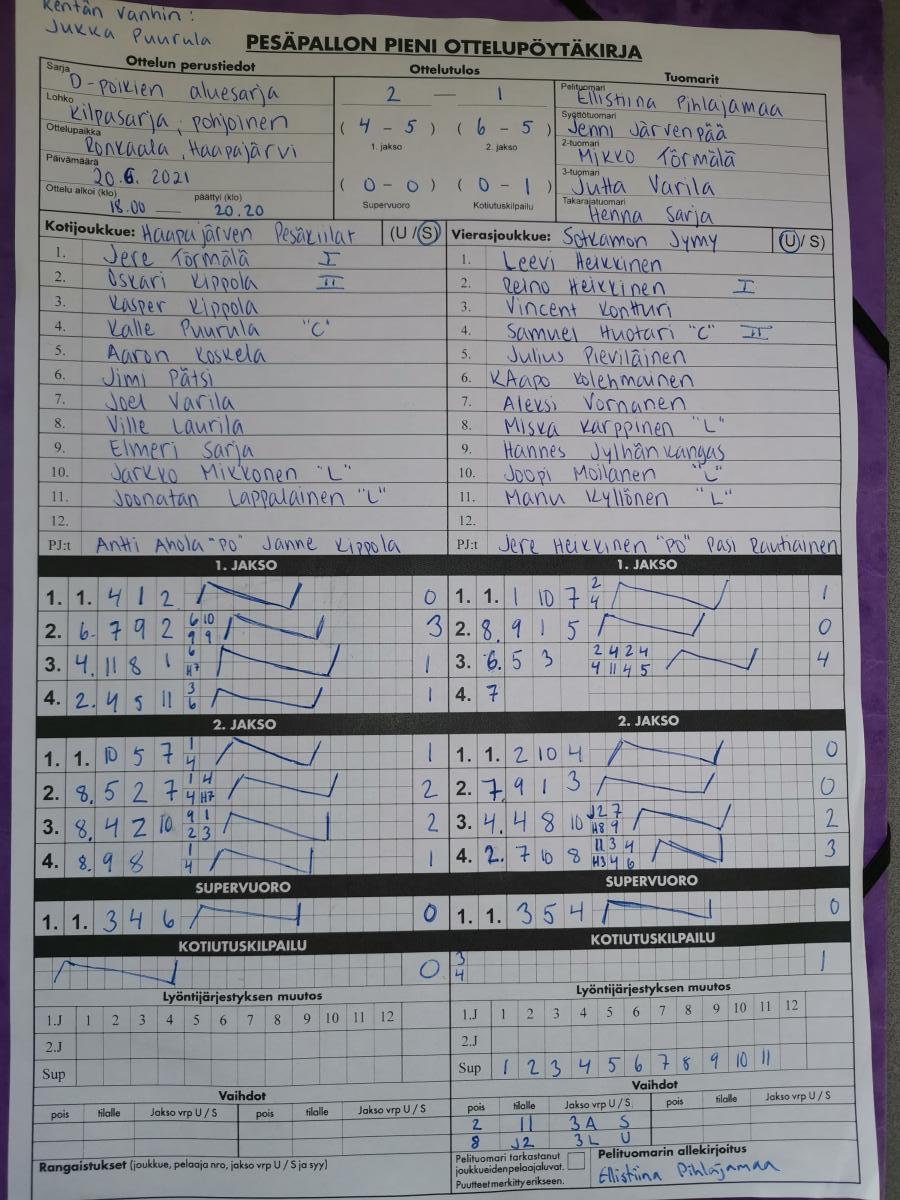 Kentän vanhin:
Jukka Puurula
PESÄPALLON PIENI OTTELUPÖYTÄKIRJA
Ottelun perustiedot
Sarja D-poikien aluesarja
Lohko Kilpasarja, pohjoinen
Ottelupaikka Ronkaala, Haapajärvi
Päivämäärä 20.6. 2021
Ottelu alkoi (klo) 18.00 — päättyi (klo) 20.20
Ottelutulos
2 — 1
( 4 - 5 ) ( 6 - 5 )
1. jakso 2. jakso
( 0 - 0 ) ( 0 - 1 )
Supervuoro Kotiutuskilpailu
Tuomarit
Pelituomari Ellistiina Pihlajamaa
Syöttötuomari Jenni Järvenpää
2-tuomari Mikko Törmälä
3-tuomari Jutta Varila
Takarajatuomari Henna Sarja
Kotijoukkue: Haapajärven Pesäkiilat (U / S)
1. Jere Törmälä I
2. Oskari Kippola II
3. Kasper Kippola
4. Kalle Puurula "C"
5. Aaron Koskela
6. Jimi Pätsi
7. Joel Varila
8. Ville Laurila
9. Elmeri Sarja
10. Jarkko Mikkonen "L"
11. Joonatan Lappalainen "L"
12.
PJ:t Antti Ahola "PO" Janne Kippola
Vierasjoukkue: Sotkamon Jymy (U / S)
1. Leevi Heikkinen
2. Reino Heikkinen I
3. Vincent Kontturi
4. Samuel Huotari "C" II
5. Julius Pieviläinen
6. KAapo Kolehmainen
7. Aleksi Vornanen
8. Miska Karppinen "L"
9. Hannes Jylhänkangas
10. Joopi Moilanen "L"
11. Manu Kyllönen "L"
12.
PJ:t Jere Heikkinen "PO" Pasi Rautiainen
1. JAKSO
1. 1. 4 1 2 0
2. 6. 7 9 2 6 10 3
9 9
3. 4. 11 8 1 6 1
H7
4. 2. 4 5 11 3 1
6
1. JAKSO
1. 1. 1 10 7 2 1
4
2. 8. 9 1 5 0
3. 6. 5 3 2 4 2 4 4
4 11 4 5
4. 7
2. JAKSO
1. 1. 10 5 7 1 1
4
2. 8. 5 2 7 1 4 2
4 H7
3. 8. 4 2 10 9 1 2
2 3
4. 8. 9 8 1 1
4
2. JAKSO
1. 1. 2 10 4 0
2. 7. 9 1 3 0
3. 4. 4 8 10 J2 7 2
H8 9
4. 2. 7 10 8 11 3 4 3
H3 4 6
SUPERVUORO
1. 1. 3 4 6 0
SUPERVUORO
1. 1. 3 5 4 0
KOTIUTUSKILPAILU
0
KOTIUTUSKILPAILU
3 1
4
Lyöntijärjestyksen muutos
1.J 1 2 3 4 5 6 7 8 9 10 11 12
2.J
Sup
Lyöntijärjestyksen muutos
1.J 1 2 3 4 5 6 7 8 9 10 11 12
2.J
Sup 1 2 3 4 5 6 7 8 9 10 11
Vaihdot
pois tilalle Jakso vrp U / S pois tilalle Jakso vrp U / S
Vaihdot
pois tilalle Jakso vrp U / S pois tilalle Jakso vrp U / S
2 11 3A S
8 J2 3L U
Rangaistukset (joukkue, pelaaja nro, jakso vrp U / S ja syy)
Pelituomari tarkastanut
joukkueidenpelaajaluvat.
Puutteet merkitty erikseen.
Pelituomarin allekirjoitus
Ellistiina Pihlajamaa